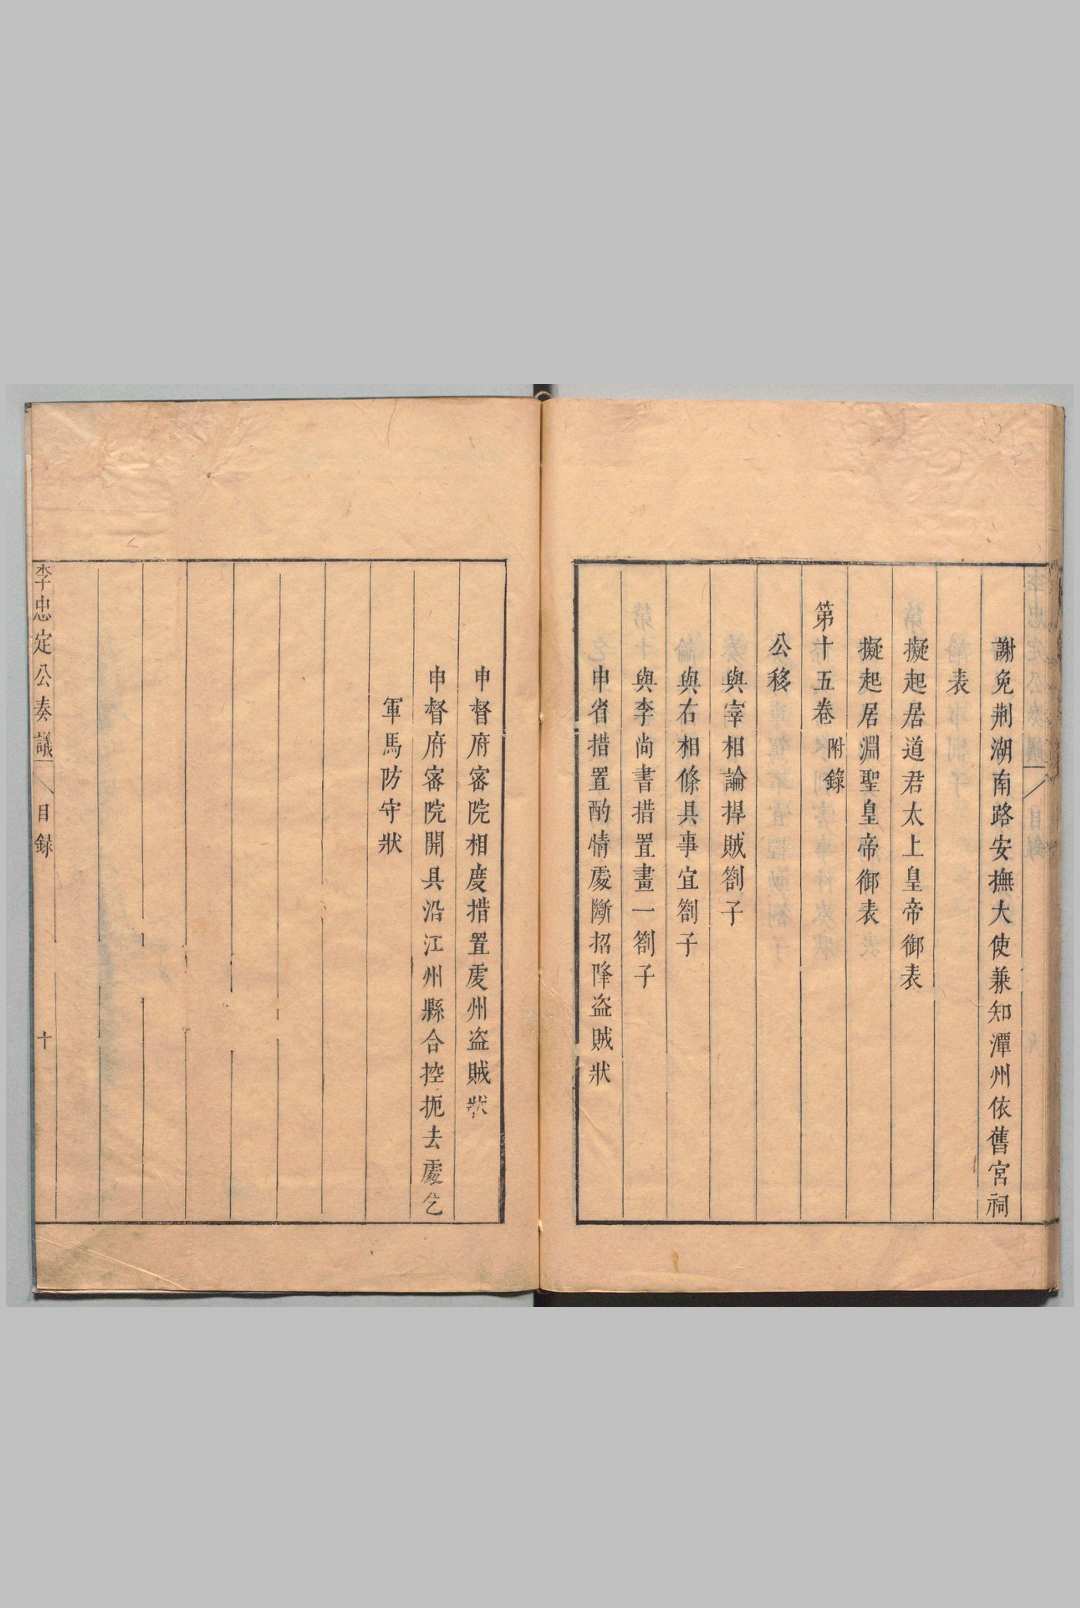 謝免荆湖南路安撫大使兼知潭州依舊宮祠
表
擬起居道君太上皇帝御表
擬起居淵聖皇帝御表
第十五卷 附錄
公移
與宰相論捍賊劄子
與右相條具事宜劄子
與李尚書措置畫一劄子
申省措置酌情處斷招降盜賊狀
申督府密院相度措置虔州盜賊狀
申督府密院開具沿江州縣合控扼去處乞
軍馬防守狀
李忠定公奏議 目錄 十